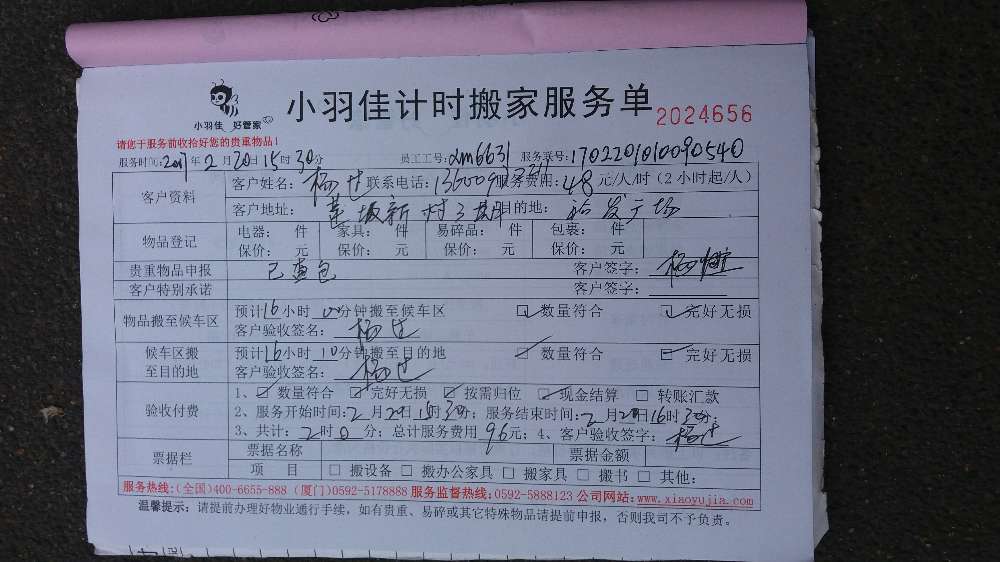 小羽佳 好管家
小羽佳计时搬家服务单 2024656
请您于服务前收拾好您的贵重物品！
服务时间:2017年2月20日15时30分 员工工号:xm6631 服务票号:1702201010090540
客户资料 客户姓名: 杨过 联系电话: 服务费用:48元/人/时(2小时起/人)
客户地址: 莲坂新村 目的地: 裕发广场
物品登记 电器: 件 家具: 件 易碎品: 件 包裹: 件
保价: 元 保价: 元 保价: 元 保价: 元
贵重物品申报 已查包 客户签字: 杨
客户特别承诺 客户签字:
物品搬至候车区 预计16小时 00分钟搬至候车区 ☑数量符合 ☑完好无损
客户验收签名: 杨过
候车区搬至目的地 预计16小时 10分钟搬至目的地 ☑数量符合 ☑完好无损
客户验收签名: 杨过
验收付费 1、☑数量符合 ☑完好无损 ☑按需归位 ☑现金结算 □转账汇款
2、服务开始时间:2月20日15时30分; 服务结束时间:2月20日16时30分;
3、共计:2时0分; 总计服务费用 96元; 4、客户验收签字: 杨过
票据栏 票据名称 票据金额
项目 □搬设备 □搬办公家具 □搬家具 □搬书 □其他:
服务热线:(全国)400-6655-888 (厦门)0592-5178888 服务监督热线:0592-5888123 公司网站:www.xiaoyujia.com
温馨提示: 请提前办理好物业通行手续, 如有贵重、易碎或其它特殊物品请提前申报, 否则我司不予负责。